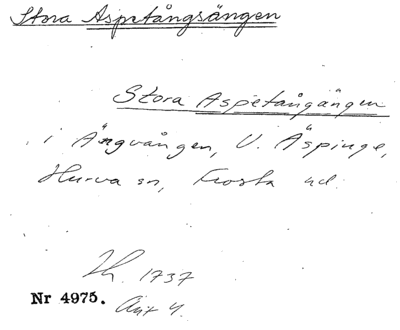 Stora Aspetångsängen
Stora Aspetångängen
i Ängvången, V. Äspinge,
Hurva sn, Frosta hd.
1737
Nr 4975. Akt 4.